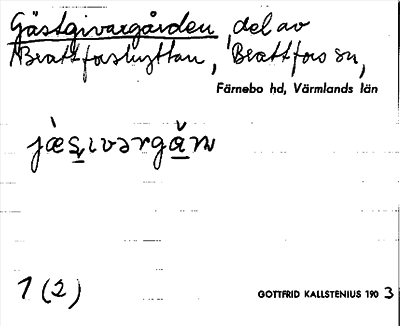 Gästgivargården, del av
Brattforshyttan, Brattfors sn,
Färnebo hd, Värmlands län
jæ̀sıvərgǎɴ
1 (2)
GOTTFRID KALLSTENIUS 1903